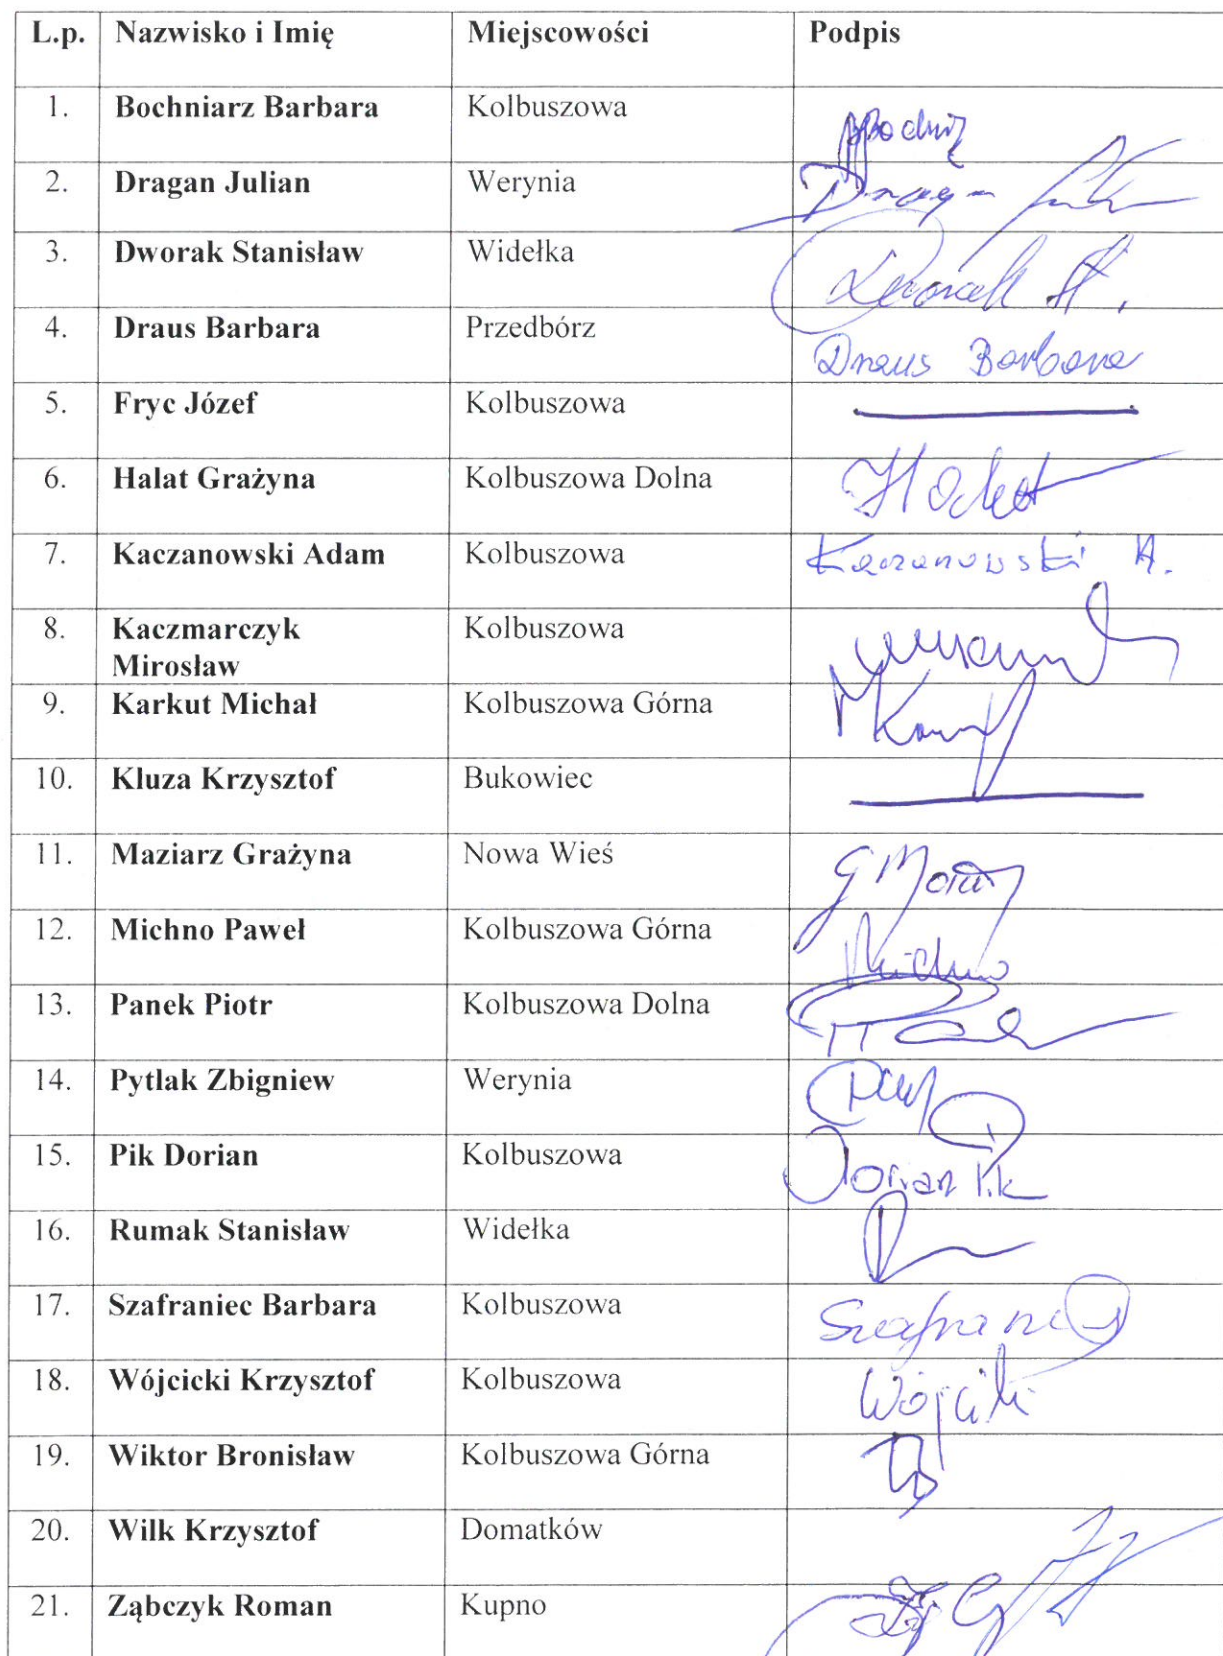 L.p. Nazwisko i Imię Miejscowości Podpis
1. Bochniarz Barbara Kolbuszowa
2. Dragan Julian Werynia
3. Dworak Stanisław Widełka Dworak St.
4. Draus Barbara Przedbórz Draus Barbara
5. Fryc Józef Kolbuszowa
6. Halat Grażyna Kolbuszowa Dolna Halat
7. Kaczanowski Adam Kolbuszowa Kaczanowski A.
8. Kaczmarczyk Kolbuszowa
Mirosław
9. Karkut Michał Kolbuszowa Górna
10. Kluza Krzysztof Bukowiec
11. Maziarz Grażyna Nowa Wieś
12. Michno Paweł Kolbuszowa Górna Michno
13. Panek Piotr Kolbuszowa Dolna
14. Pytlak Zbigniew Werynia
15. Pik Dorian Kolbuszowa Dorian Pik
16. Rumak Stanisław Widełka
17. Szafraniec Barbara Kolbuszowa
18. Wójcicki Krzysztof Kolbuszowa
19. Wiktor Bronisław Kolbuszowa Górna
20. Wilk Krzysztof Domatków
21. Ząbczyk Roman Kupno